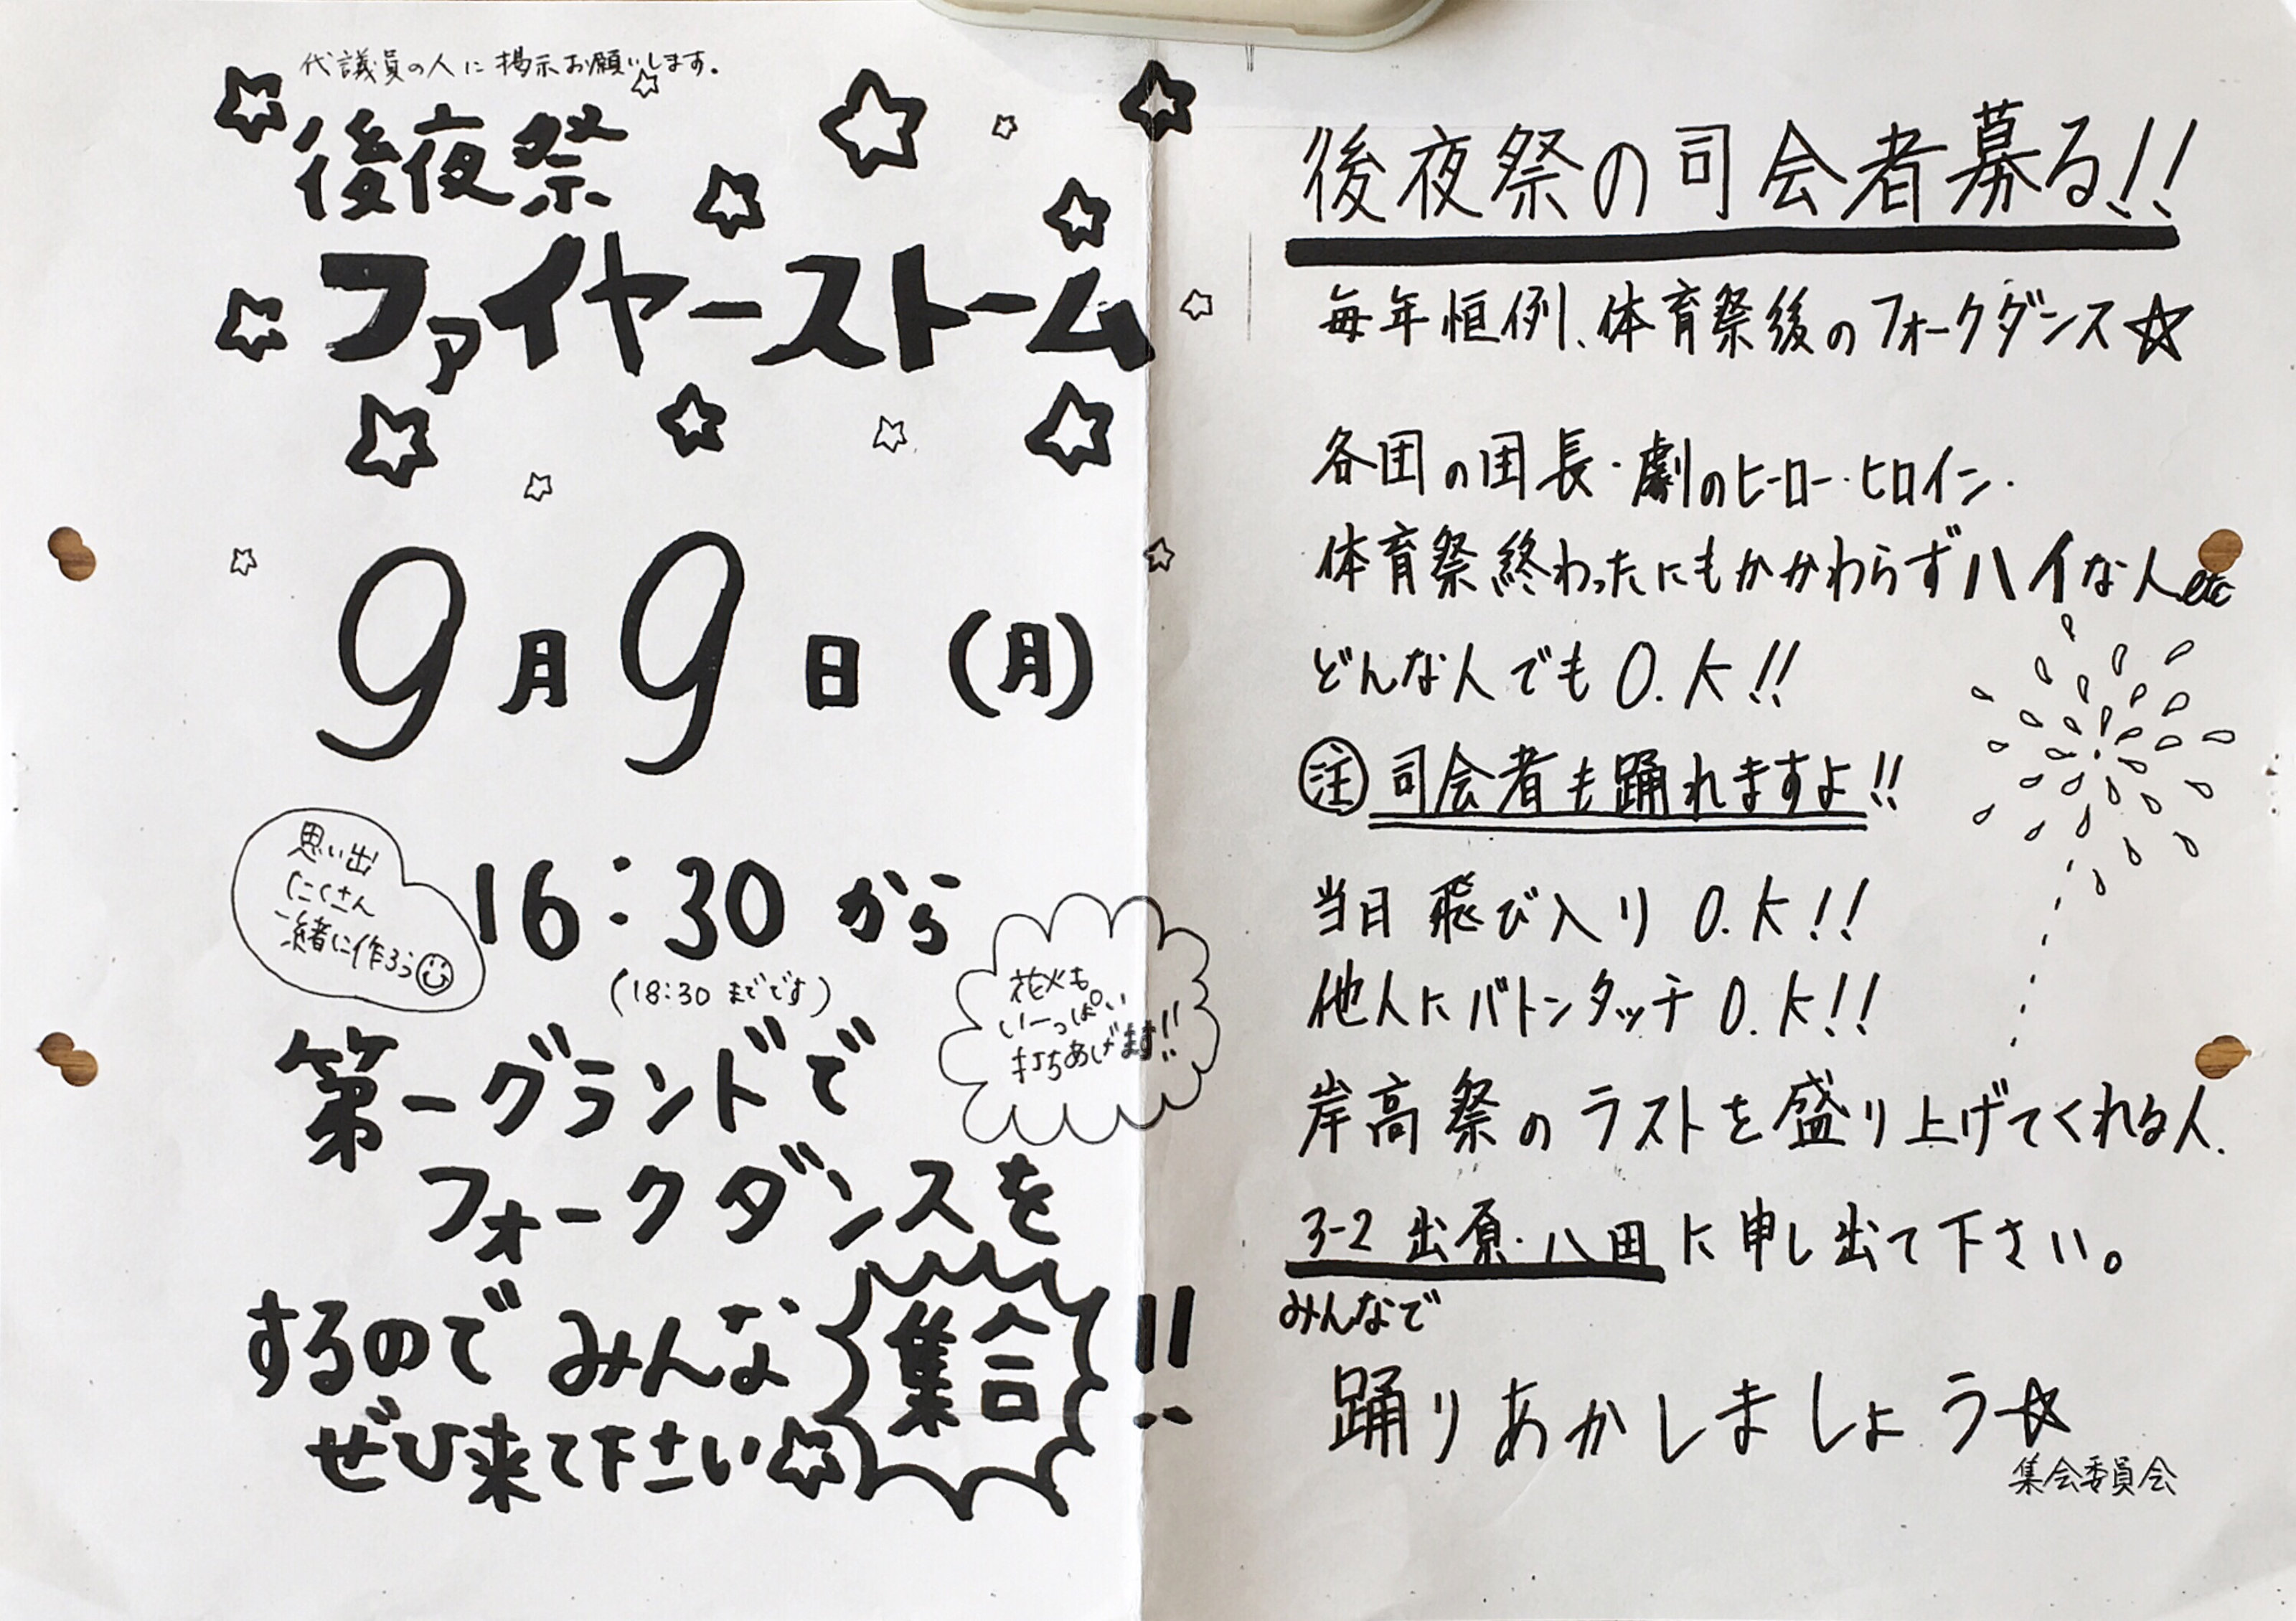 代議員の人に掲示お願いします。
後夜祭
ファイヤーストーム
9月9日(月)
思い出
たくさん
一緒に作ろう
16:30から
(18:30までです)
花火も
いーっぱい
打ちあげます!!
第一グランドで
フォークダンスを
するのでみんな集合!!
ぜひ来て下さい☆
後夜祭の司会者募る!!
毎年恒例、体育祭後のフォークダンス☆
各団の団長・劇のヒーロー・ヒロイン・
体育祭終わったにもかかわらずハイな人etc
どんな人でもO.K!!
㊟司会者も踊れますよ!!
当日飛び入りO.K!!
他人にバトンタッチO.K!!
岸高祭のラストを盛り上げてくれる人、
3-2 出原・八田に申し出て下さい。
みんなで
踊りあかしましょう☆
集会委員会